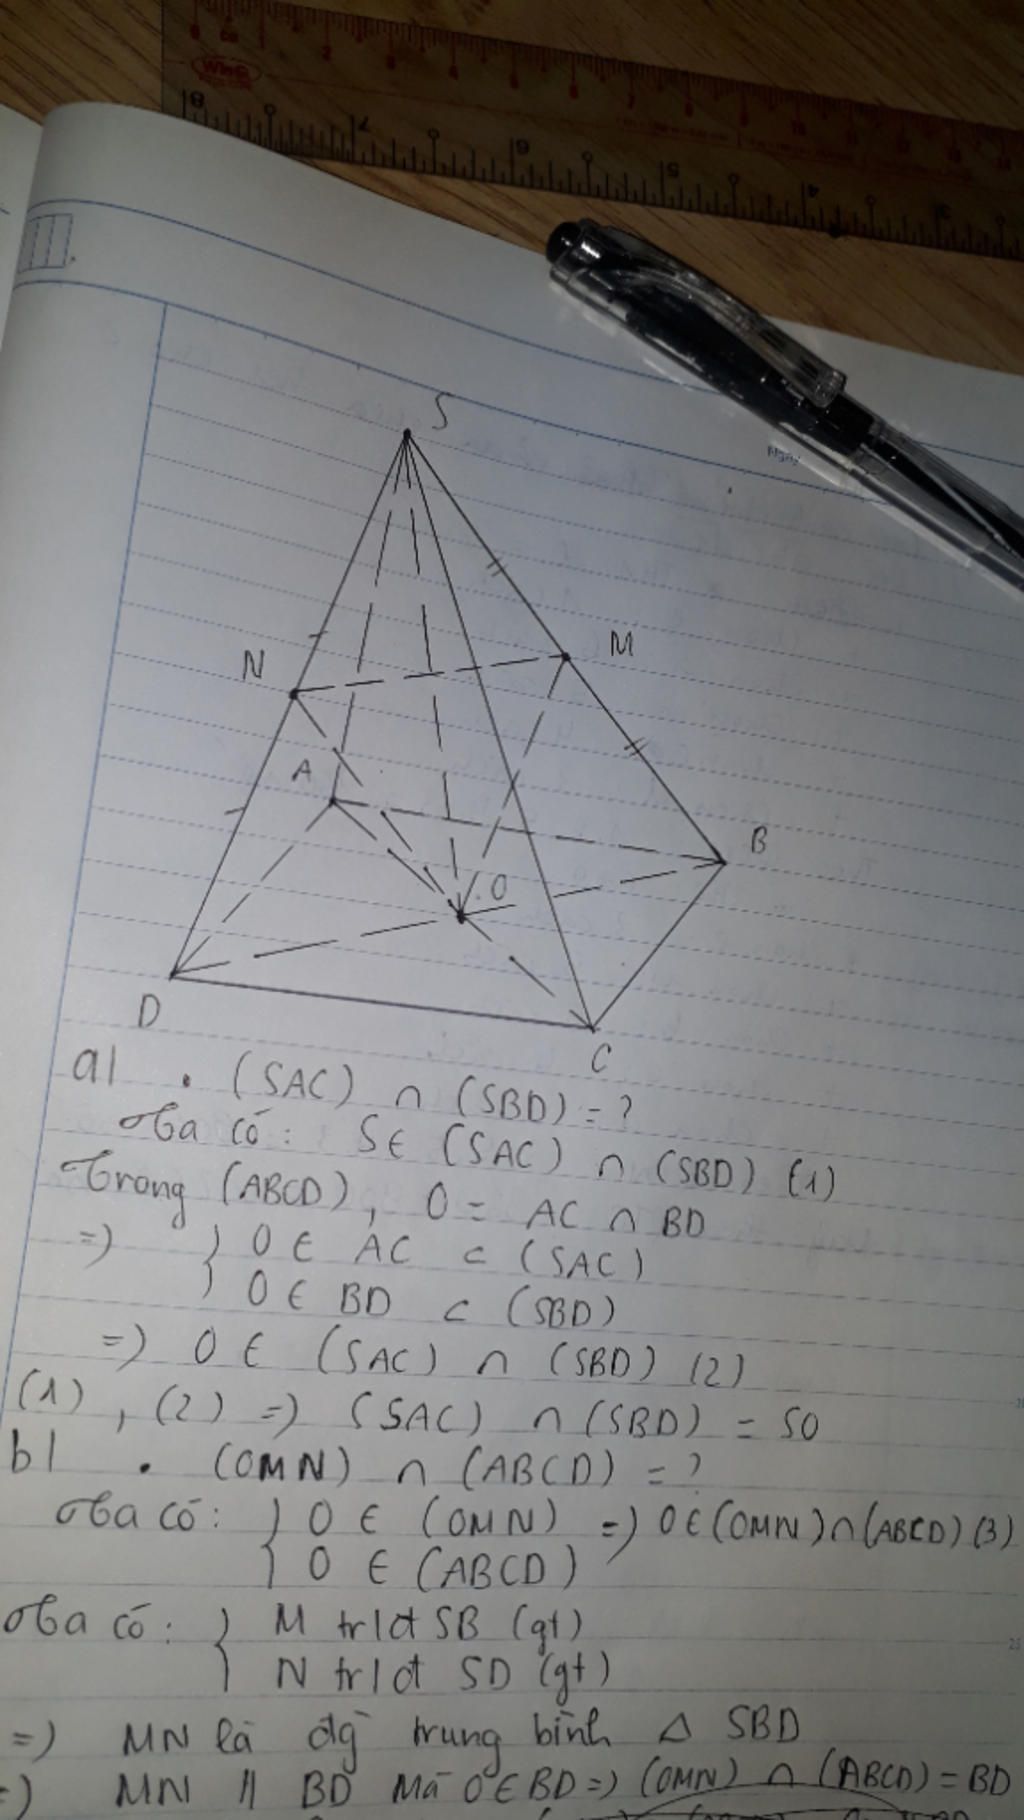 WinG
cm
8 7 6 5 4 3
Ngày
S
N
M
A
B
O
D
C
a| . (SAC) ∩ (SBD) = ?
Ta có: S ∈ (SAC) ∩ (SBD) (1)
Trong (ABCD), O = AC ∩ BD
=> } O ∈ AC ⊂ (SAC)
} O ∈ BD ⊂ (SBD)
=> O ∈ (SAC) ∩ (SBD) (2)
(1), (2) => (SAC) ∩ (SBD) = SO
b| . (OMN) ∩ (ABCD) = ?
Ta có: } O ∈ (OMN) => O ∈ (OMN) ∩ (ABCD) (3)
} O ∈ (ABCD)
Ta có: } M tr|đ SB (gt)
} N tr|đ SD (gt)
=> MN là đg̀ trung bình Δ SBD
=> MN // BD Mà O ∈ BD => (OMN) ∩ (ABCD) = BD